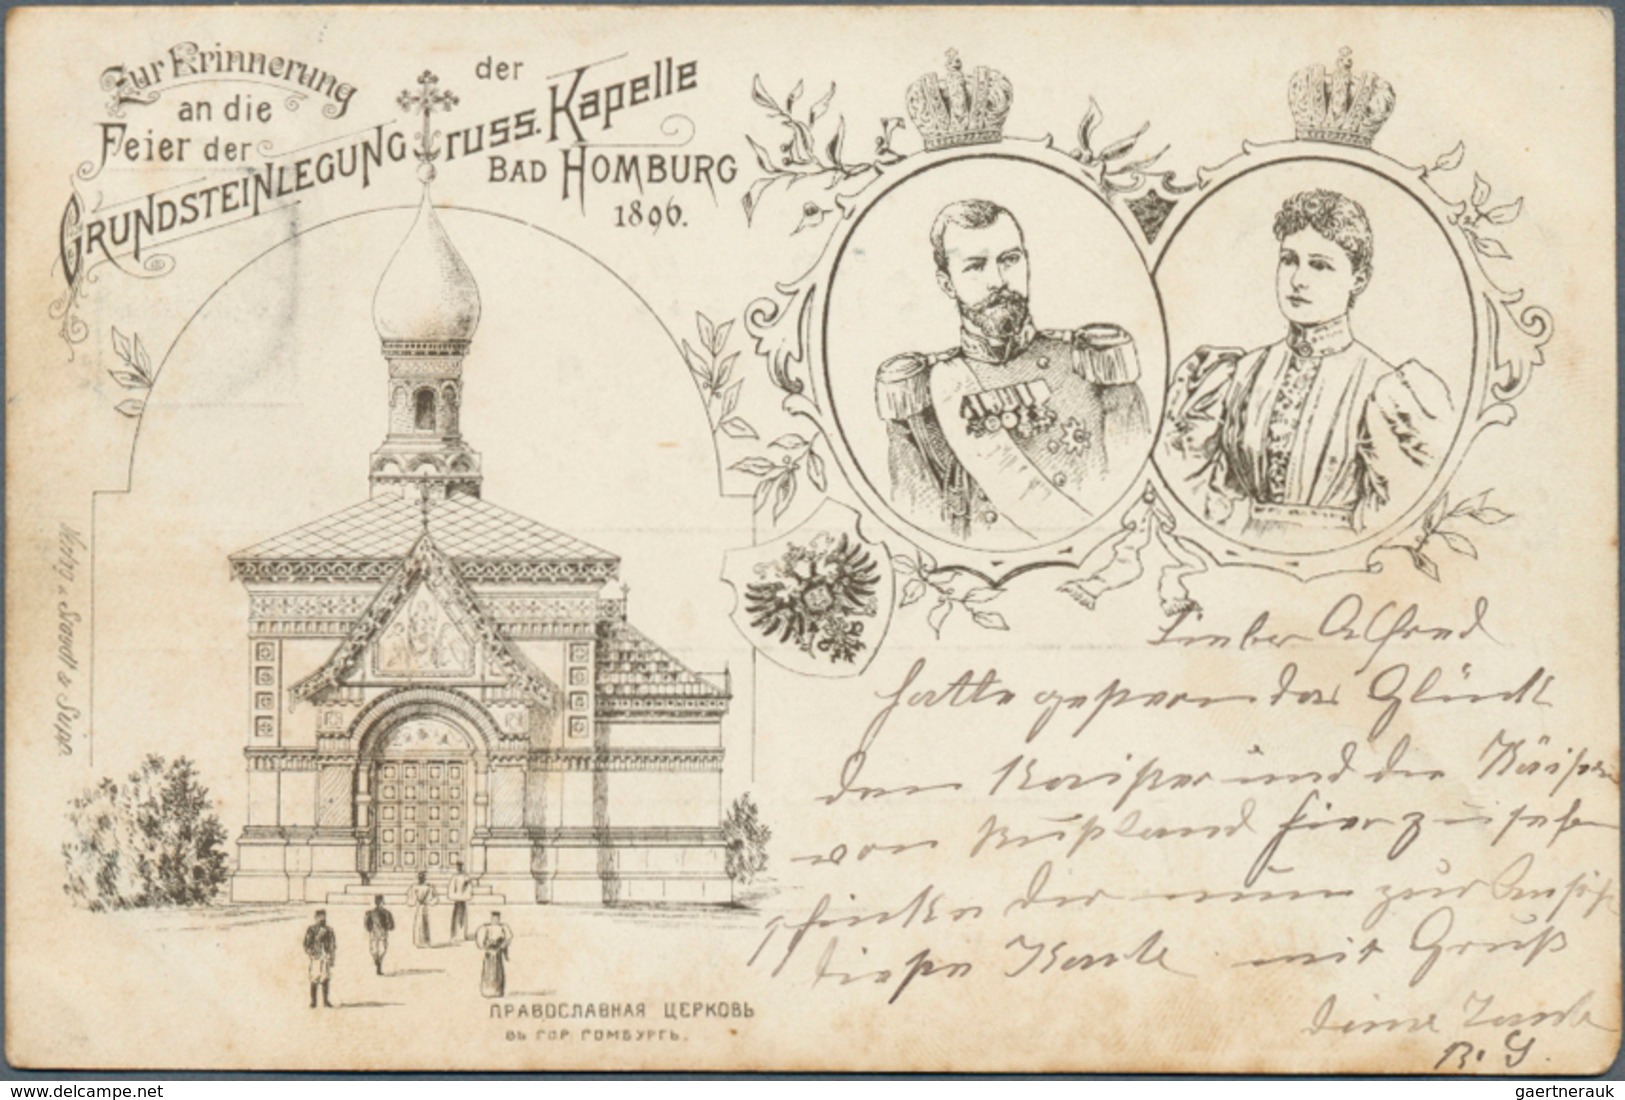 Zur Erinnerung
an die
Feier der
GRUNDSTEINLEGUNG
der
russ. Kapelle
BAD HOMBURG
1896.
Verlag v. & Supp.
ПРАВОСЛАВНАЯ ЦЕРКОВЬ
ВЪ ГОР. ГОМБУРГѢ.
Lieber Alfred
hatte gestern das Glück
den Kaiser und die Kaiserin
von Rußland hier zu sehen
schicke dir nun zur Ansicht
diese Karte. mit Gruß
deine Tante
B. S.
gaertnerauk @ www.delcampe.net